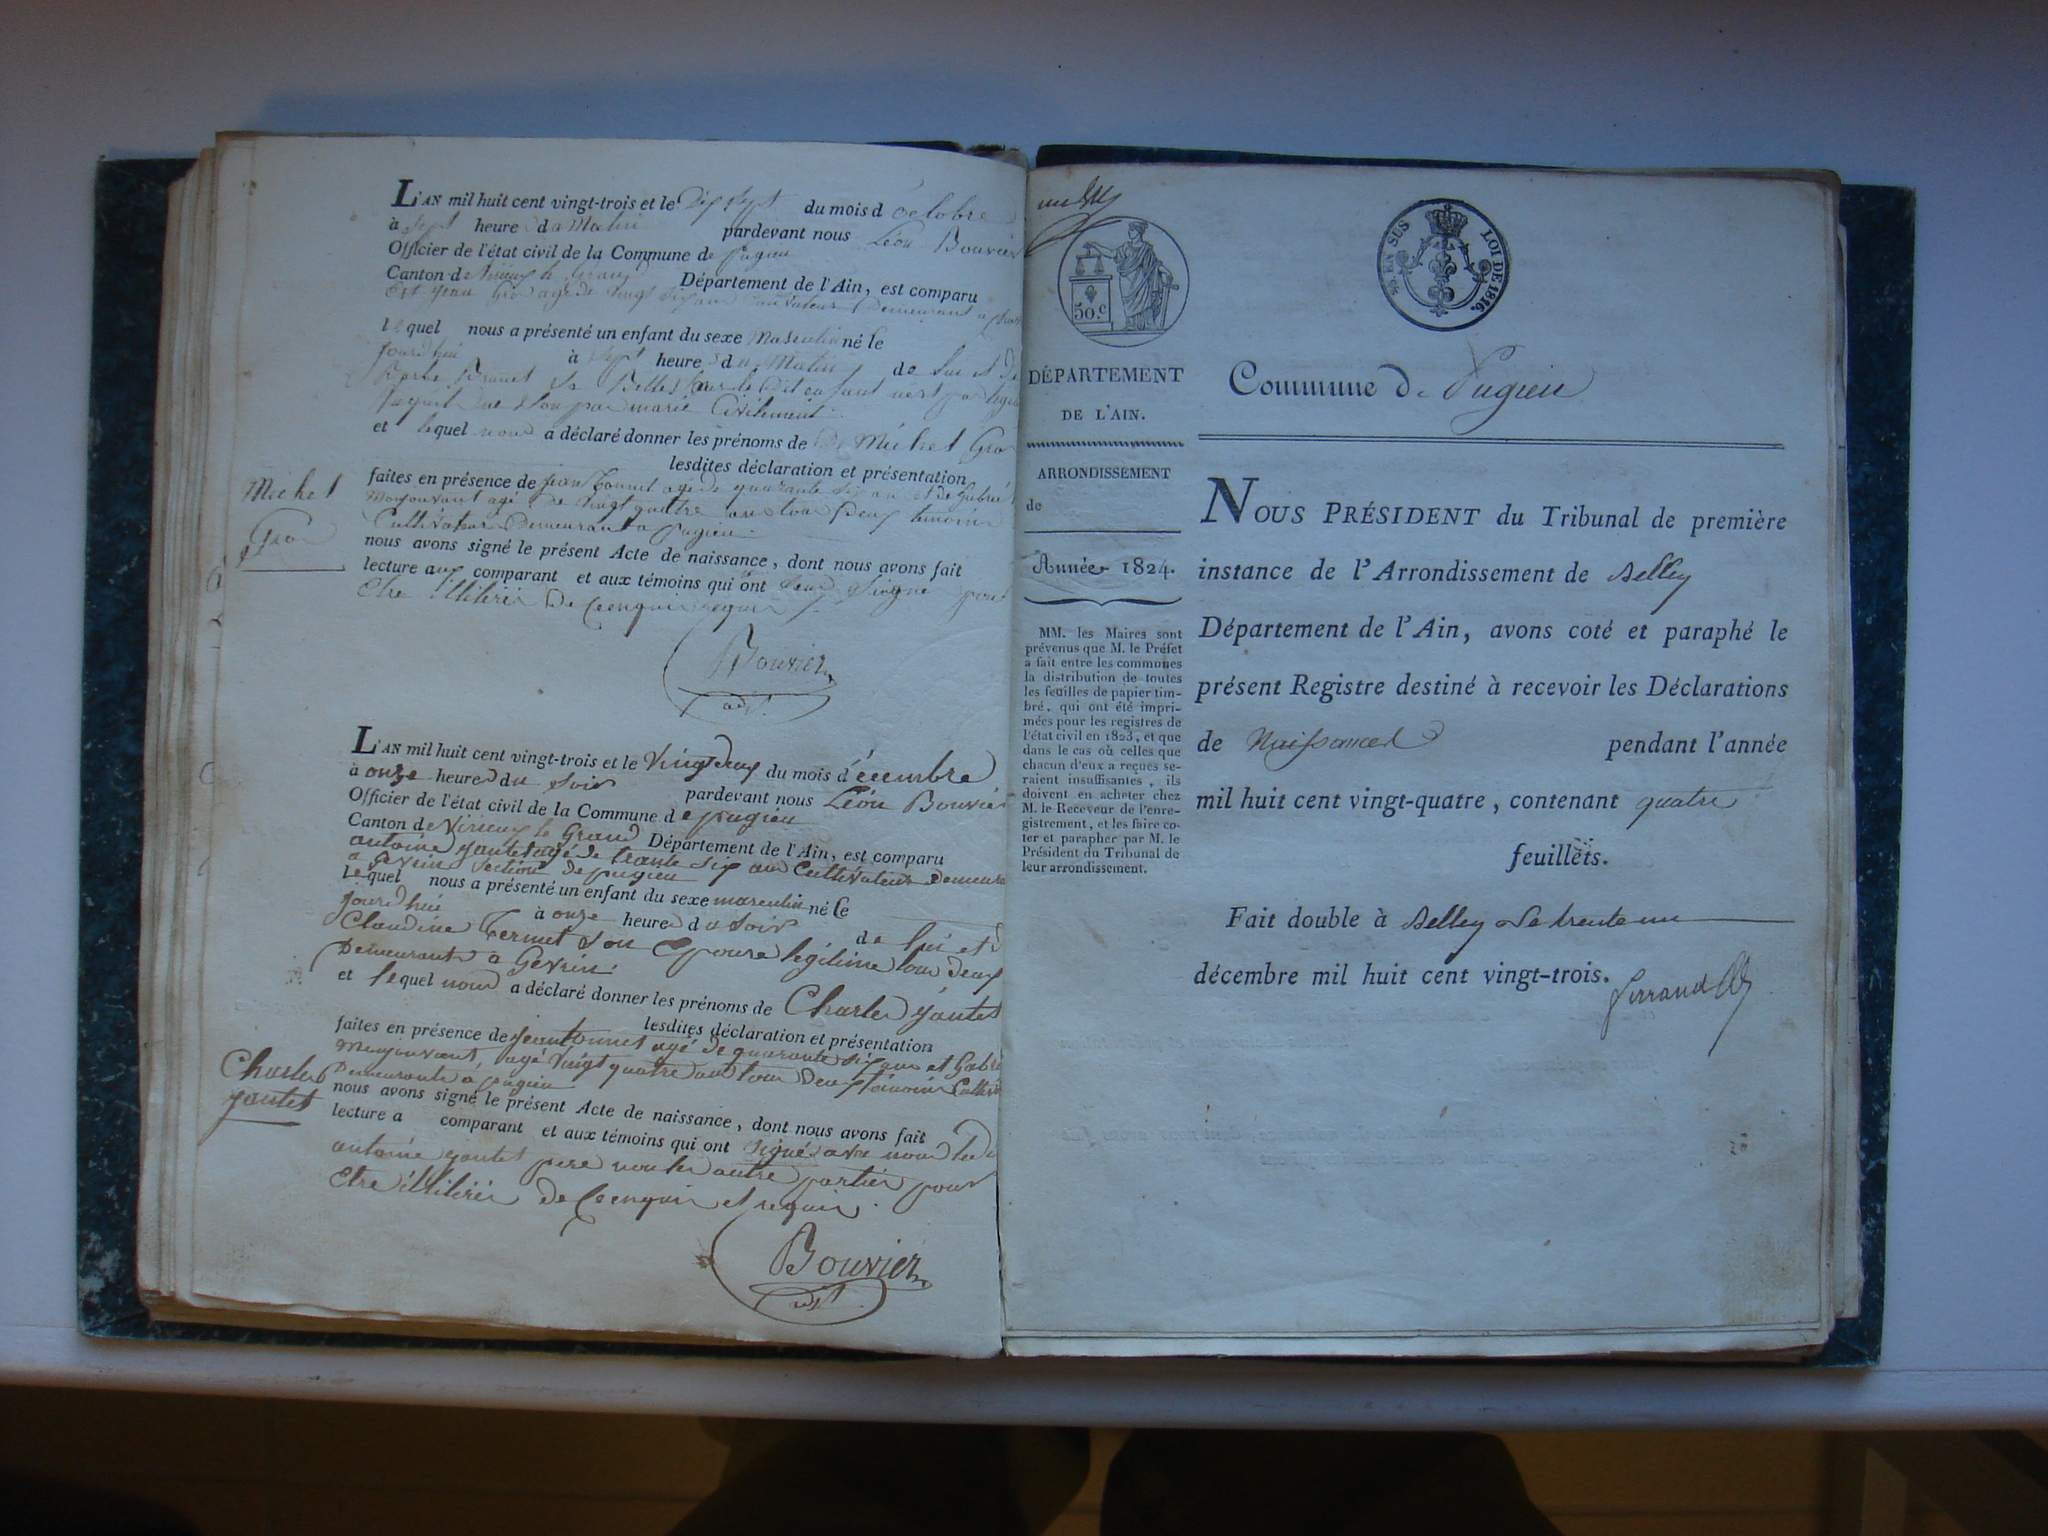 L'AN mil huit cent vingt-trois et le Dix sept du mois d'octobre
à sept heure du Matin pardevant nous Léon Bouvier
Officier de l'état civil de la Commune de pugieu
Canton de Virieux le Grand Département de l'Ain, est comparu
agé de vingt six ans Cultivateur Demeurant a
lequel nous a présenté un enfant du sexe Masculin né le
jourdhui à sept heure du Matin de lui et de
marié Civilement
et lequel nous a déclaré donner les prénoms de Michel Gro
lesdites déclaration et présentation
faites en présence de jean tonnet agé de quarante six an et de Gabriel
Monjouvant agé de vingt quatre an tou Deux temoins
Cultivateur Demeurant a pugieu
Michel
Gro
nous avons signé le présent Acte de naissance, dont nous avons fait
lecture aux comparant et aux témoins qui ont pour
Etre illitéréi De
Bouvier
adj.
L'AN mil huit cent vingt-trois et le Vingt deux du mois d'écembre
à onze heures du soir pardevant nous Léon Bouvier
Officier de l'état civil de la Commune de pugieu
Canton de Virieux le Grand Département de l'Ain, est comparu
antoine yantet agé de trante six ans Cultivateur Demeura
a Gevrin section de pugieu
lequel nous a présenté un enfant du sexe masculin né le
jourdhui à onze heures du soir de lui et d
Claudine son Epouse légitime tou deux
Demeurant a Gevrin
et lequel nous a déclaré donner les prénoms de Charles yantet
lesdites déclaration et présentation
faites en présence de jean tonnet agé de quarante six ans et Gabri
Monjouvant, agé vingt quatre an tou Deux temoins Cultiv
Demeurants a pugieu
Charles
yantet
nous avons signé le présent Acte de naissance, dont nous avons fait
lecture a comparant et aux témoins qui ont signé avec nous
antoine yantet pere non les autre partier pour
Etre illitéréi De et requis.
Bouvier
adj.
50.c
LOI DE 1816.
DÉPARTEMENT
DE L'AIN.
ARRONDISSEMENT
de
Année 1824.
MM. les Maires sont
prévenus que M. le Préfet
a fait entre les communes
la distribution de toutes
les feuilles de papier tim-
bré, qui ont été impri-
mées pour les registres de
l'état civil en 1823, et que
dans le cas où celles que
chacun d'eux a reçues se-
raient insuffisantes, ils
doivent en acheter chez
M. le Receveur de l'enre-
gistrement, et les faire co-
ter et parapher par M. le
Président du Tribunal de
leur arrondissement.
Commune de Pugieu
NOUS PRÉSIDENT du Tribunal de première
instance de l'Arrondissement de Belley
Département de l'Ain, avons coté et paraphé le
présent Registre destiné à recevoir les Déclarations
de Naissances pendant l'année
mil huit cent vingt-quatre, contenant quatre
feuillets.
Fait double à Belley Le trente un
décembre mil huit cent vingt-trois.